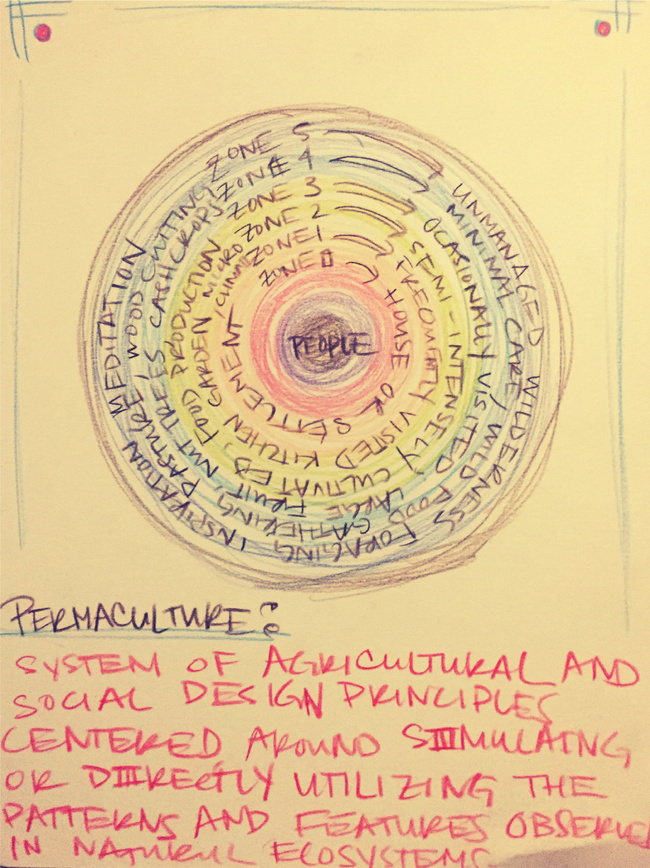 ZONE 5 UNMANAGED WILDERNESS FORAGING INSPIRATION MEDITATION
ZONE 4 MINIMAL CARE, WILD FOOD GATHERING, PASTURE, WOOD CUTTING
ZONE 3 OCASIONALLY VISITED LARGE FRUIT NUT TREES CASH CROPS
ZONE 2 SEMI-INTENSELY CULTIVATED, FOOD PRODUCTION
ZONE 1 FREQUENTLY VISITED KITCHEN GARDEN MICRO
ZONE 0 HOUSE OR SETTLEMENT
PEOPLE
PERMACULTURE:
SYSTEM OF AGRICULTURAL AND
SOCIAL DESIGN PRINCIPLES
CENTERED AROUND SIMULATING
OR DIRECTLY UTILIZING THE
PATTERNS AND FEATURES OBSERVE
IN NATURUL ECOSYSTEMS